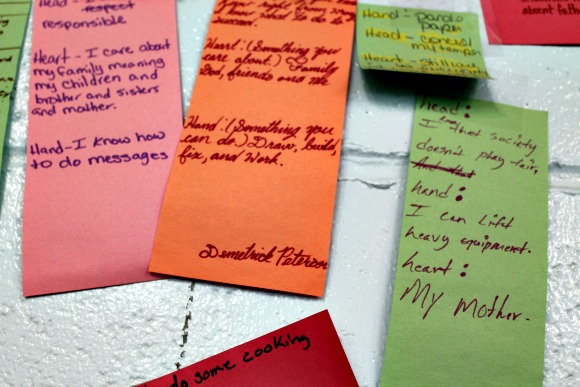 Head - I respect
responsible
Heart - I care about
my family meaning
my children and
brother and sisters
and mother.
Hand - I know how
to do messages
what to do to?
Heart: (Something you
care about.) Family
God, friends and me
Hand: (Something you
can do.) Draw, build,
fix, and work.
Demetrick Peterson
Hand:
Head -
my temper
Heart -
absent father
head:
I know that society
doesn't play fair,
hand:
I can lift
heavy equipment.
heart:
My Mother.
do some cooking